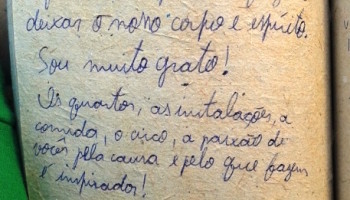 deixar o nosso corpo e espírito.
Sou muito grato!
Os quartos, as instalações, a
comida, o circo, a paixão de
vocês pela causa e pelo que fazem
é inspirador!